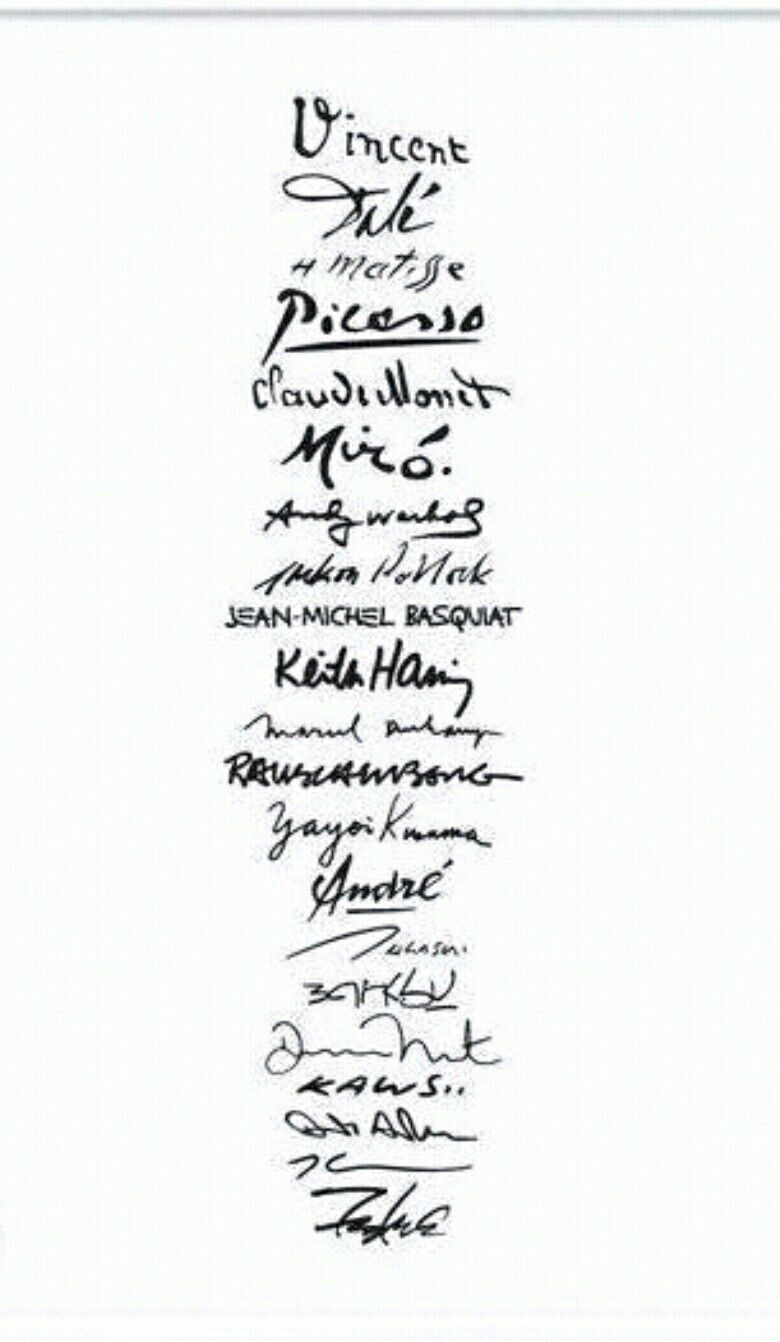 Vincent
Dalí
H Matisse
Picasso
Claude Monet
Miró.
Andy Warhol
Jackson Pollock
JEAN-MICHEL BASQUIAT
Keith Haring
Marcel Duchamp
RAUSCHENBERG
Yayoi Kusama
André
BANKSY
KAWS..